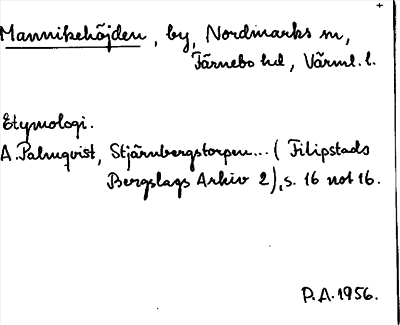 Mannikehöjden, by, Nordmarks sn,
Färnebo hd, Värml. l.
Etymologi.
A. Palmqvist, Stjärnbergstorpen... (Filipstads
Bergslags Arkiv 2), s. 16 not 16.
P.A. 1956.